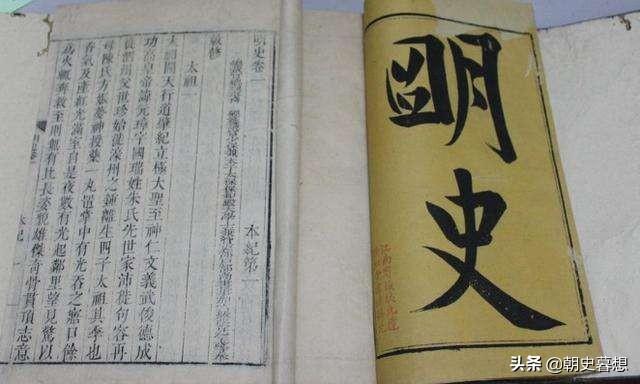 明史
明史卷一
本紀第一
敕修
太祖一
太祖開天行道肇紀立極大聖至神仁文義武俊德成
功高皇帝諱元璋字國瑞姓朱氏先世家沛徙句容再
徙泗州父世珍始徙濠州之鍾離生四子太祖其季也
母陳氏方娠夢神授藥一丸置掌中有光吞之寤口餘
香氣及產紅光滿室自是夜數有光起鄰里望見驚以
為火輒奔救至則無有比長姿貌雄傑奇骨貫頂志意
本紀
头条 @朝史暮想